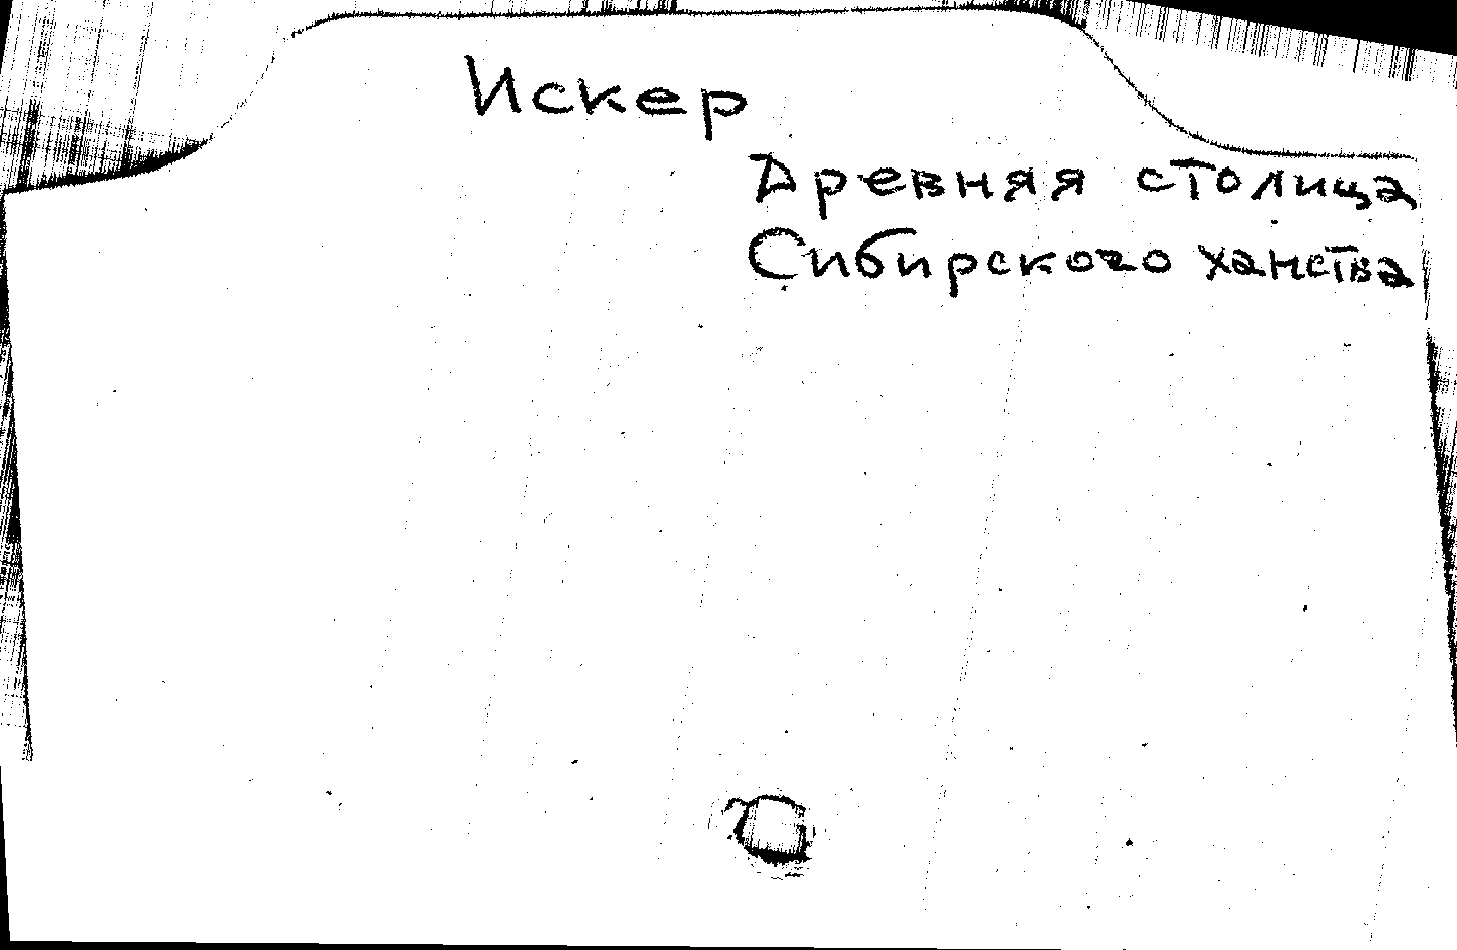 Искер
Древняя столица
Сибирского ханства